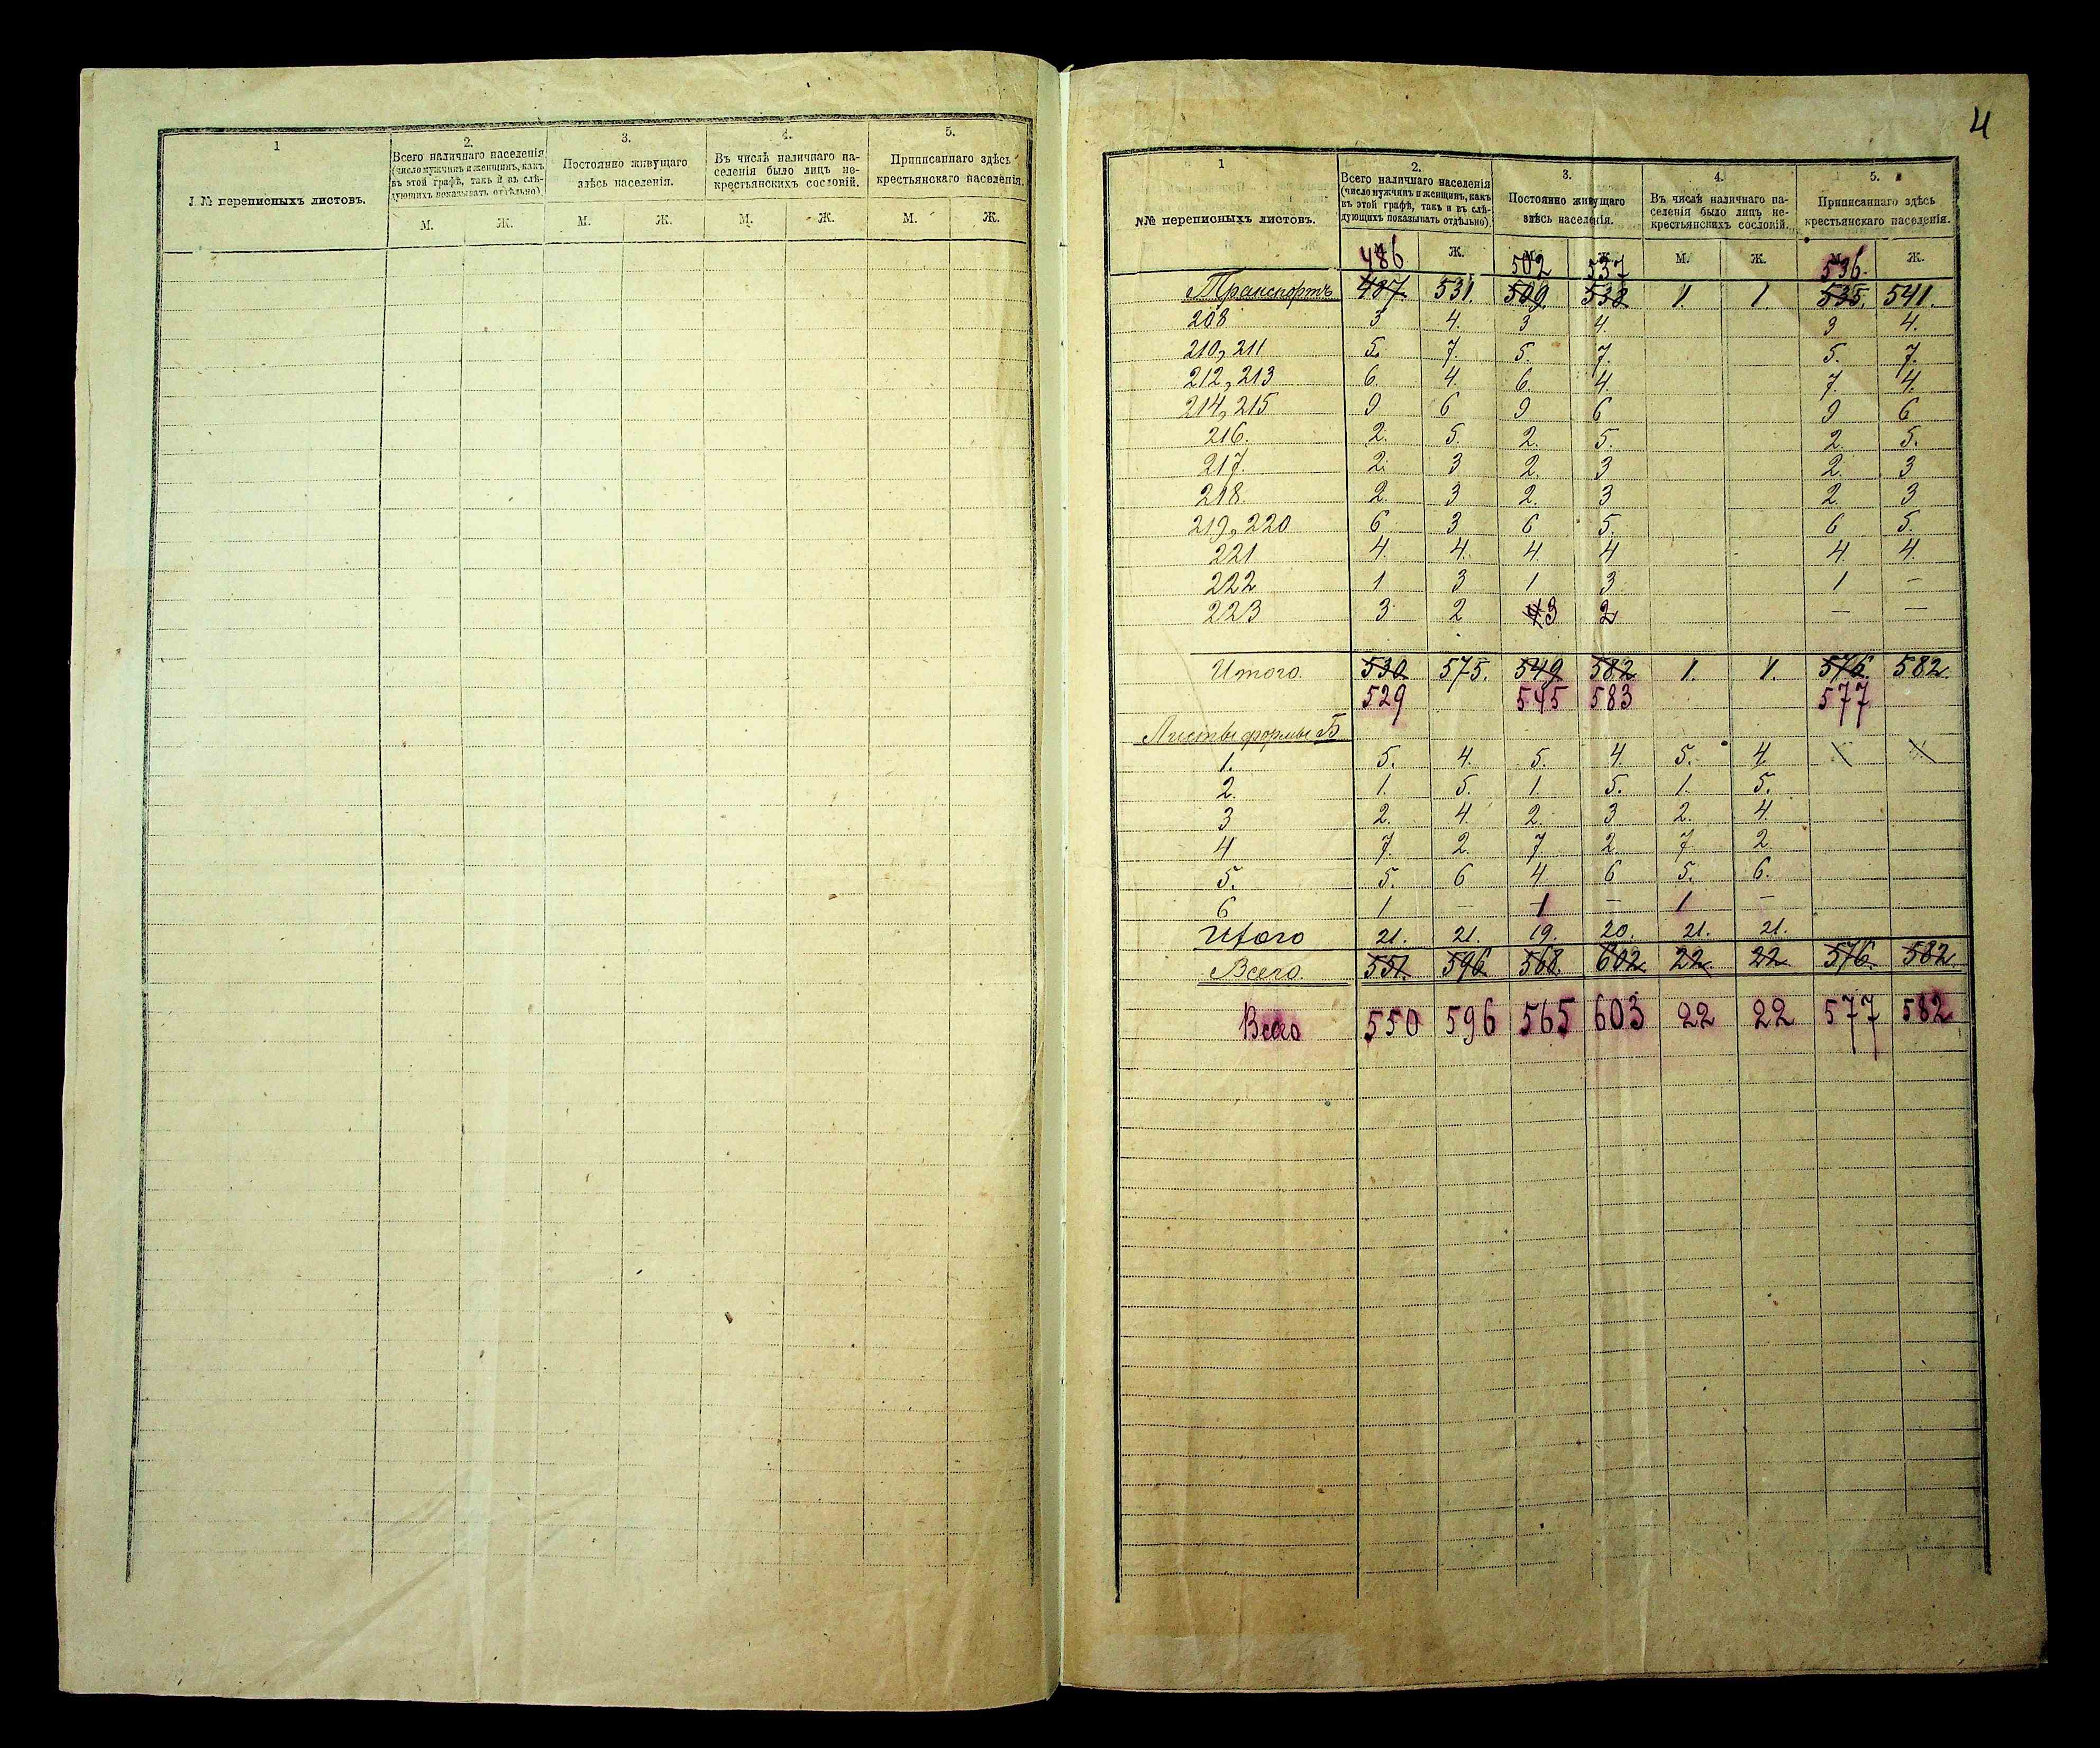 1
2.
3.
4.
5.
№ переписныхъ листовъ.
Всего наличнаго населенія
(число мужчинъ и женщинъ, какъ
въ этой графѣ, такъ и въ слѣ-
дующихъ показывать отдѣльно).
Постоянно живущаго
здѣсь населенія.
Въ числѣ наличнаго на-
селенія было лицъ не-
крестьянскихъ сословій.
Приписаннаго здѣсь
крестьянскаго населенія.
М. Ж. М. Ж. М. Ж. М. Ж.
4
1
2.
3.
4.
5.
№№ переписныхъ листовъ.
Всего наличнаго населенія
(число мужчинъ и женщинъ, какъ
въ этой графѣ, такъ и въ слѣ-
дующихъ показывать отдѣльно).
Постоянно живущаго
здѣсь населенія.
Въ числѣ наличнаго на-
селенія было лицъ не-
крестьянскихъ сословій.
Приписаннаго здѣсь
крестьянскаго населенія.
М. Ж. М. Ж. М. Ж. М. Ж.
486 502 537 536.
Транспортъ 487. 531. 509. 538 1. 1. 535. 541.
208 3 4. 3 4. 3 4.
210, 211 5. 7. 5. 7. 5. 7.
212, 213 6. 4. 6. 4. 7. 4.
214, 215 9 6 9 6 9 6
216. 2. 5. 2. 5. 2. 5.
217. 2. 3 2. 3 2. 3
218. 2. 3 2. 3 2. 3
219, 220 6 3 6 5. 6 5.
221 4. 4. 4. 4 4. 4.
222 1 3 1 3 1 —
223 3 2 4 3 2 — —
Итого. 530 575. 549 582 1. 1. 576. 582.
529 545 583 577
Листы формы Б.
1. 5. 4. 5. 4. 5. 4.
2. 1. 5. 1. 5. 1. 5.
3 2. 4. 2. 3 2. 4.
4 7. 2. 7. 2. 7. 2
5. 5. 6 4 6 5. 6.
6 1 — 1 — 1 —
Итого 21. 21. 19. 20. 21. 21.
Всего. 551. 596. 568. 602. 22. 22 576. 582.
Всего 550 596 565 603 22 22 577 582